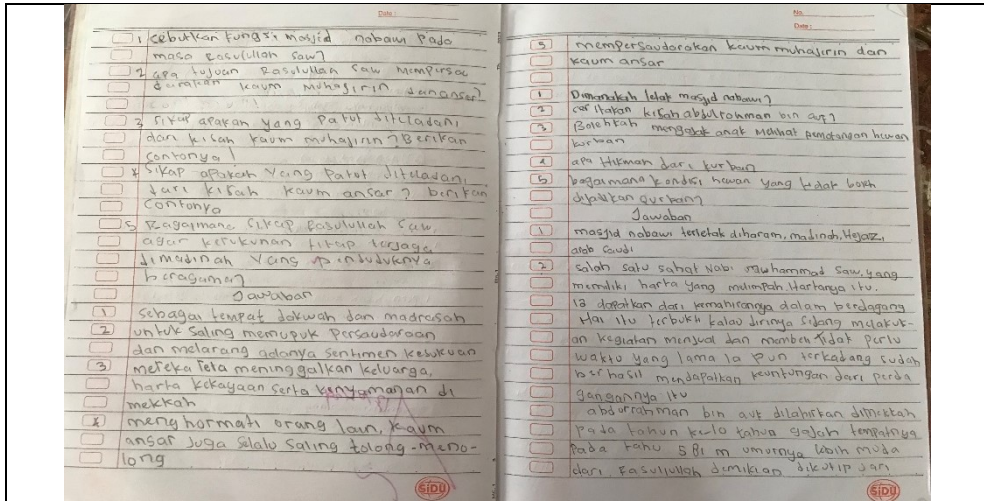 Date :
1 sebutkan fungsi masjid nabawi Pada
masa Rasulullah saw?
2 apa tujuan Rasulullah Saw Mempersau
darakan kaum Muhajirin dan ansar?
3 Sikap apakah yang Patut diteladani
dari kisah kaum muhajirin? Berikan
Contonya!
4 Sikap apakah Yang Patut diteladani
dari kisah kaum ansar? berikan
Contonya
5 Bagaimana Sikap Rasulullah Saw,
agar kerukunan titap terjaga
dimadinah Yang pinduduknya
beragama?
Jawaban
1 sebagai tempat dakwah dan madrasah
2 untuk saling memupuk Persaudaraan
dan melarang adanya sentimen kesukuan
3 mereka rela meninggalkan keluarga,
harta kekayaan serta kenyamanan di
mekkah
4 menghormati orang lain, kaum
ansar juga selalu saling tolong-meno-
long
SIDU
No.
Date :
5 mempersaudarakan kaum muhajirin dan
kaum ansar
1 Dimanakah letak masjid nabawi?
2 ceritakan kisah abdulrohman bin auf?
3 Bolehkah mengajak anak Malihat pemotongan hewan
kurban
4 apa Hikmah dari kurban
5 bagaimana kondisi hewan yang tidak boleh
dijadikan qurban?
Jawaban
1 masjid nabawi terletak diharam, madinah, Hejaz,
arab saudi
2 salah satu sahat Nabi muhammad saw. yang
memiliki harta yang mulimpah. Hartanya itu.
Ia dapatkan dari kemahirannya dalam berdagang
Hal itu terbukti kalau dirinya sidang melakuk-
an kegiatan menjual dan membeli Tidak perlu
waktu yang lama Ia pun terkadang sudah
berhasil mendapatkan keuntungan dari perda
gangannya itu
abdurrahman bin auf dilahirkan dimekkah
Pada tahun ke-10 tahun gajah tempatnya
Pada tahu 581 m umurnya lebih muda
dari Rasullullah dimikian dikutip dari
SIDU